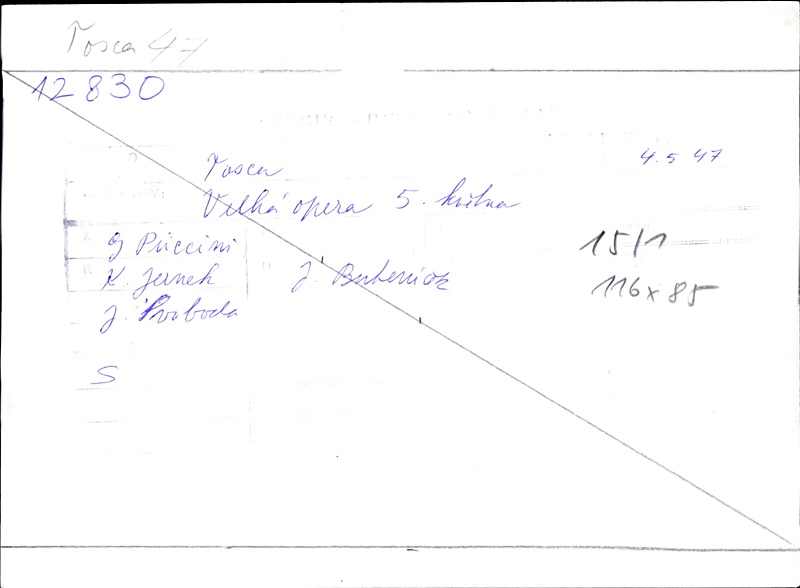 Tosca 47
12 830
Tosca 4.5 47
Velká opera 5. května
G Puccini 15/1
K. Jernek J. 116 x 85
J. Svoboda
S